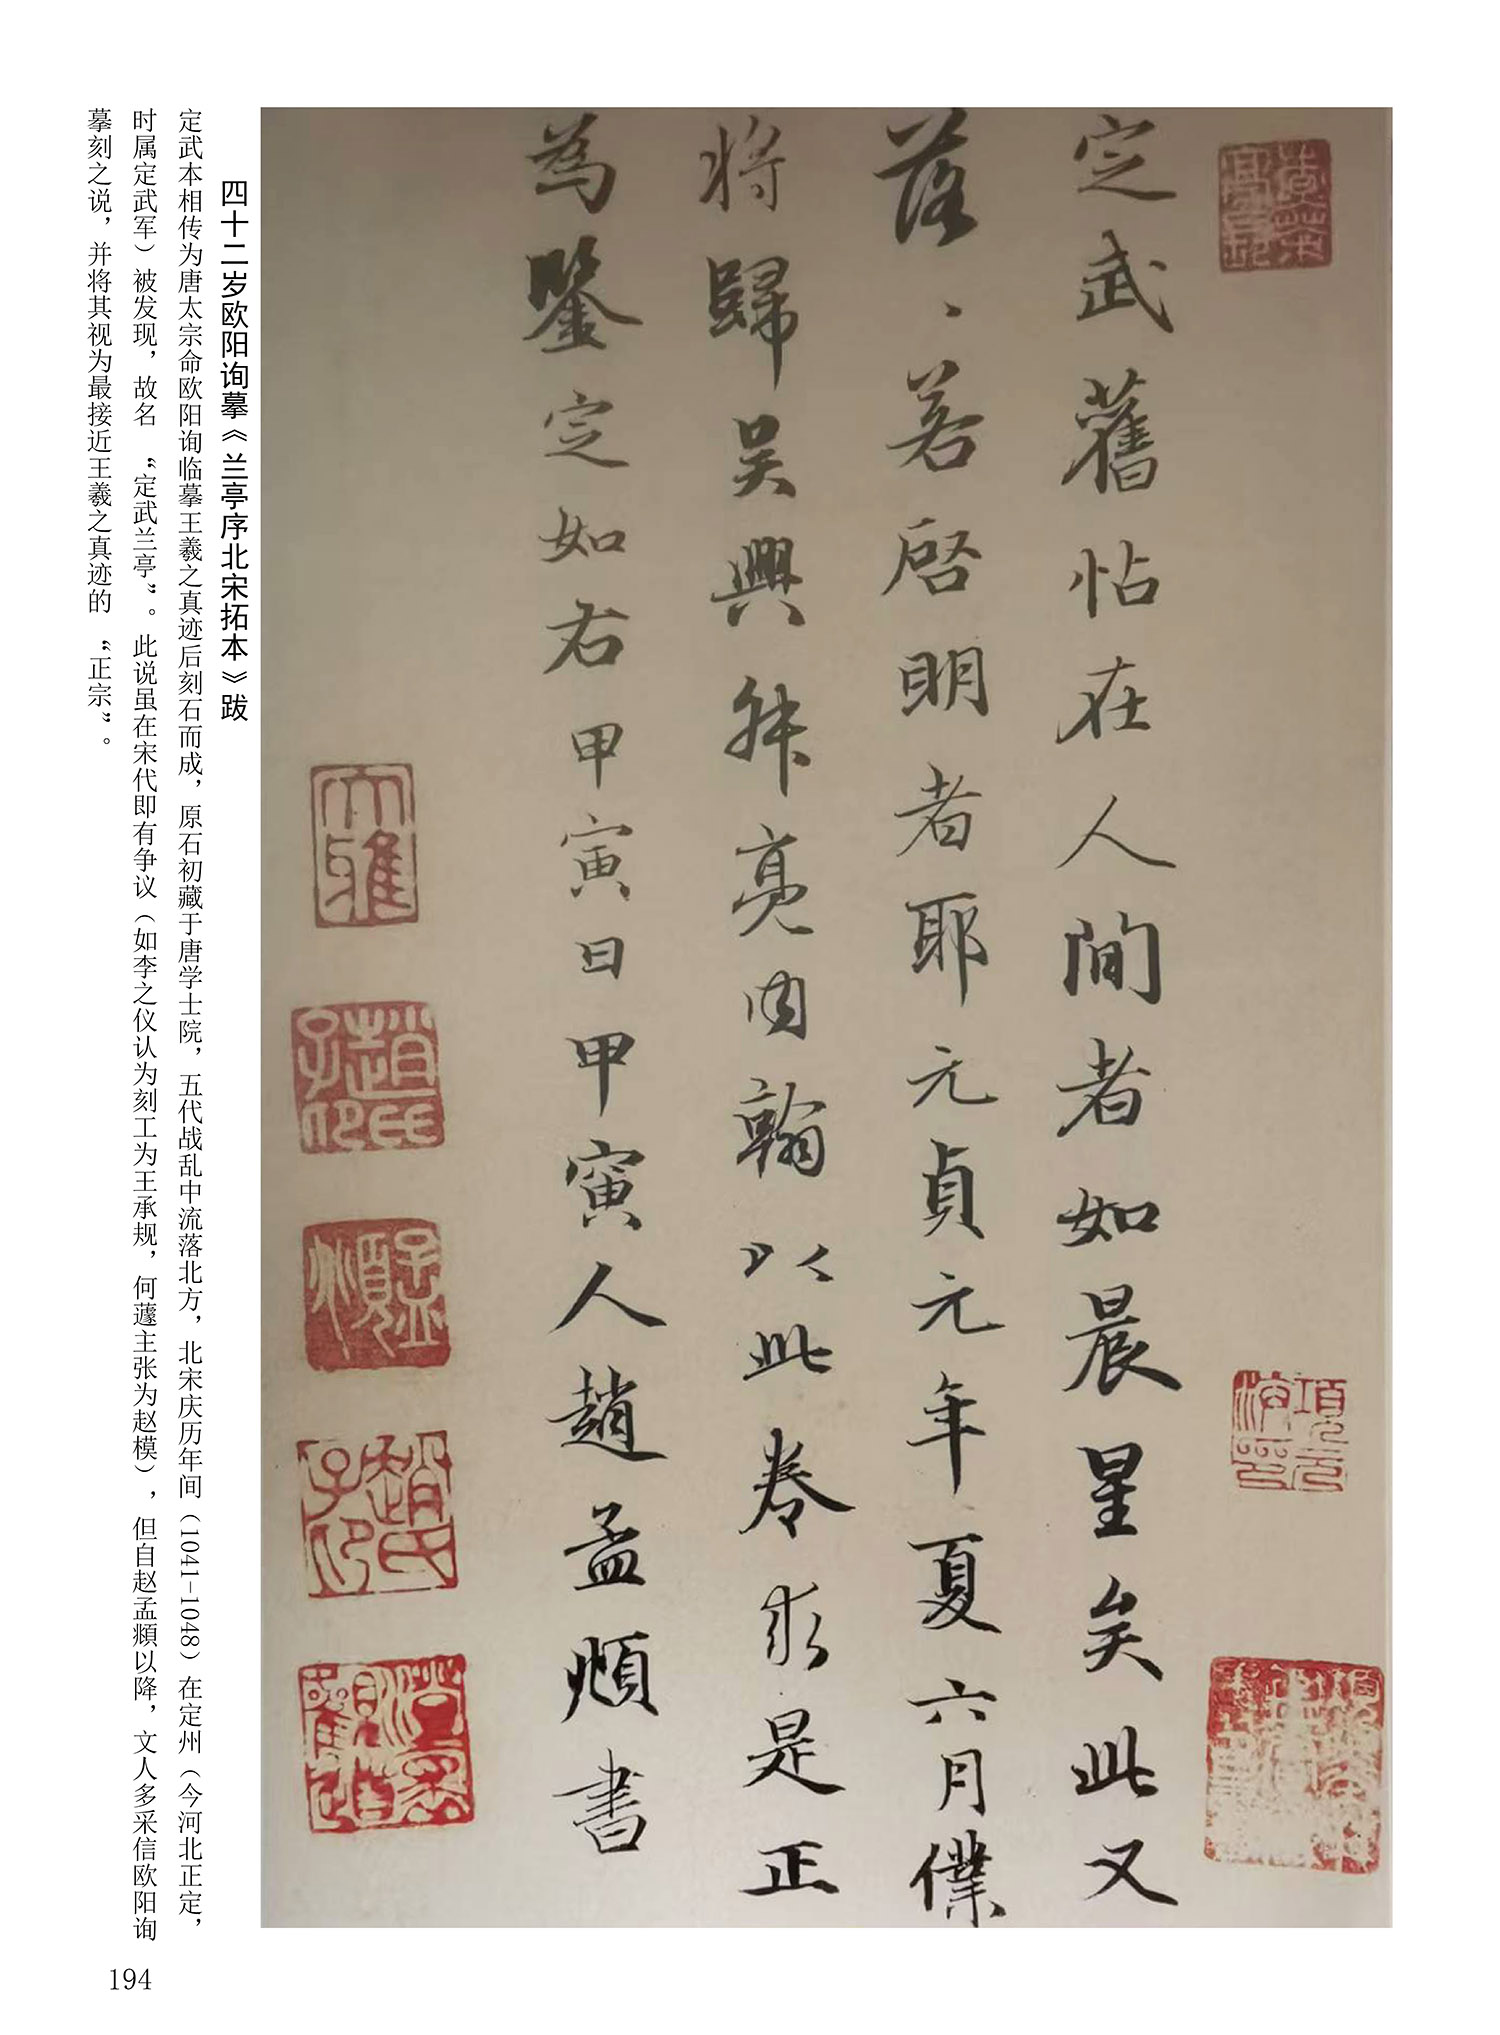 定武舊帖在人間者如晨星矣此又
落、若啓明者耶元貞元年夏六月僕
將歸吴興舛亮内翰以此卷求是正
為鑒定如右甲寅日甲寅人趙孟頫書
大雅
趙氏子印
趙氏子印
項元汴印
四十二岁欧阳询摹《兰亭序北宋拓本》跋
定武本相传为唐太宗命欧阳询临摹王羲之真迹后刻石而成，原石初藏于唐学士院，五代战乱中流落北方，北宋庆历年间（1041-1048）在定州（今河北正定，
时属定武军）被发现，故名 “定武兰亭”。此说虽在宋代即有争议（如李之仪认为刻工为王承规，何薳主张为赵模），但自赵孟頫以降，文人多采信欧阳询
摹刻之说，并将其视为最接近王羲之真迹的 “正宗”。
194